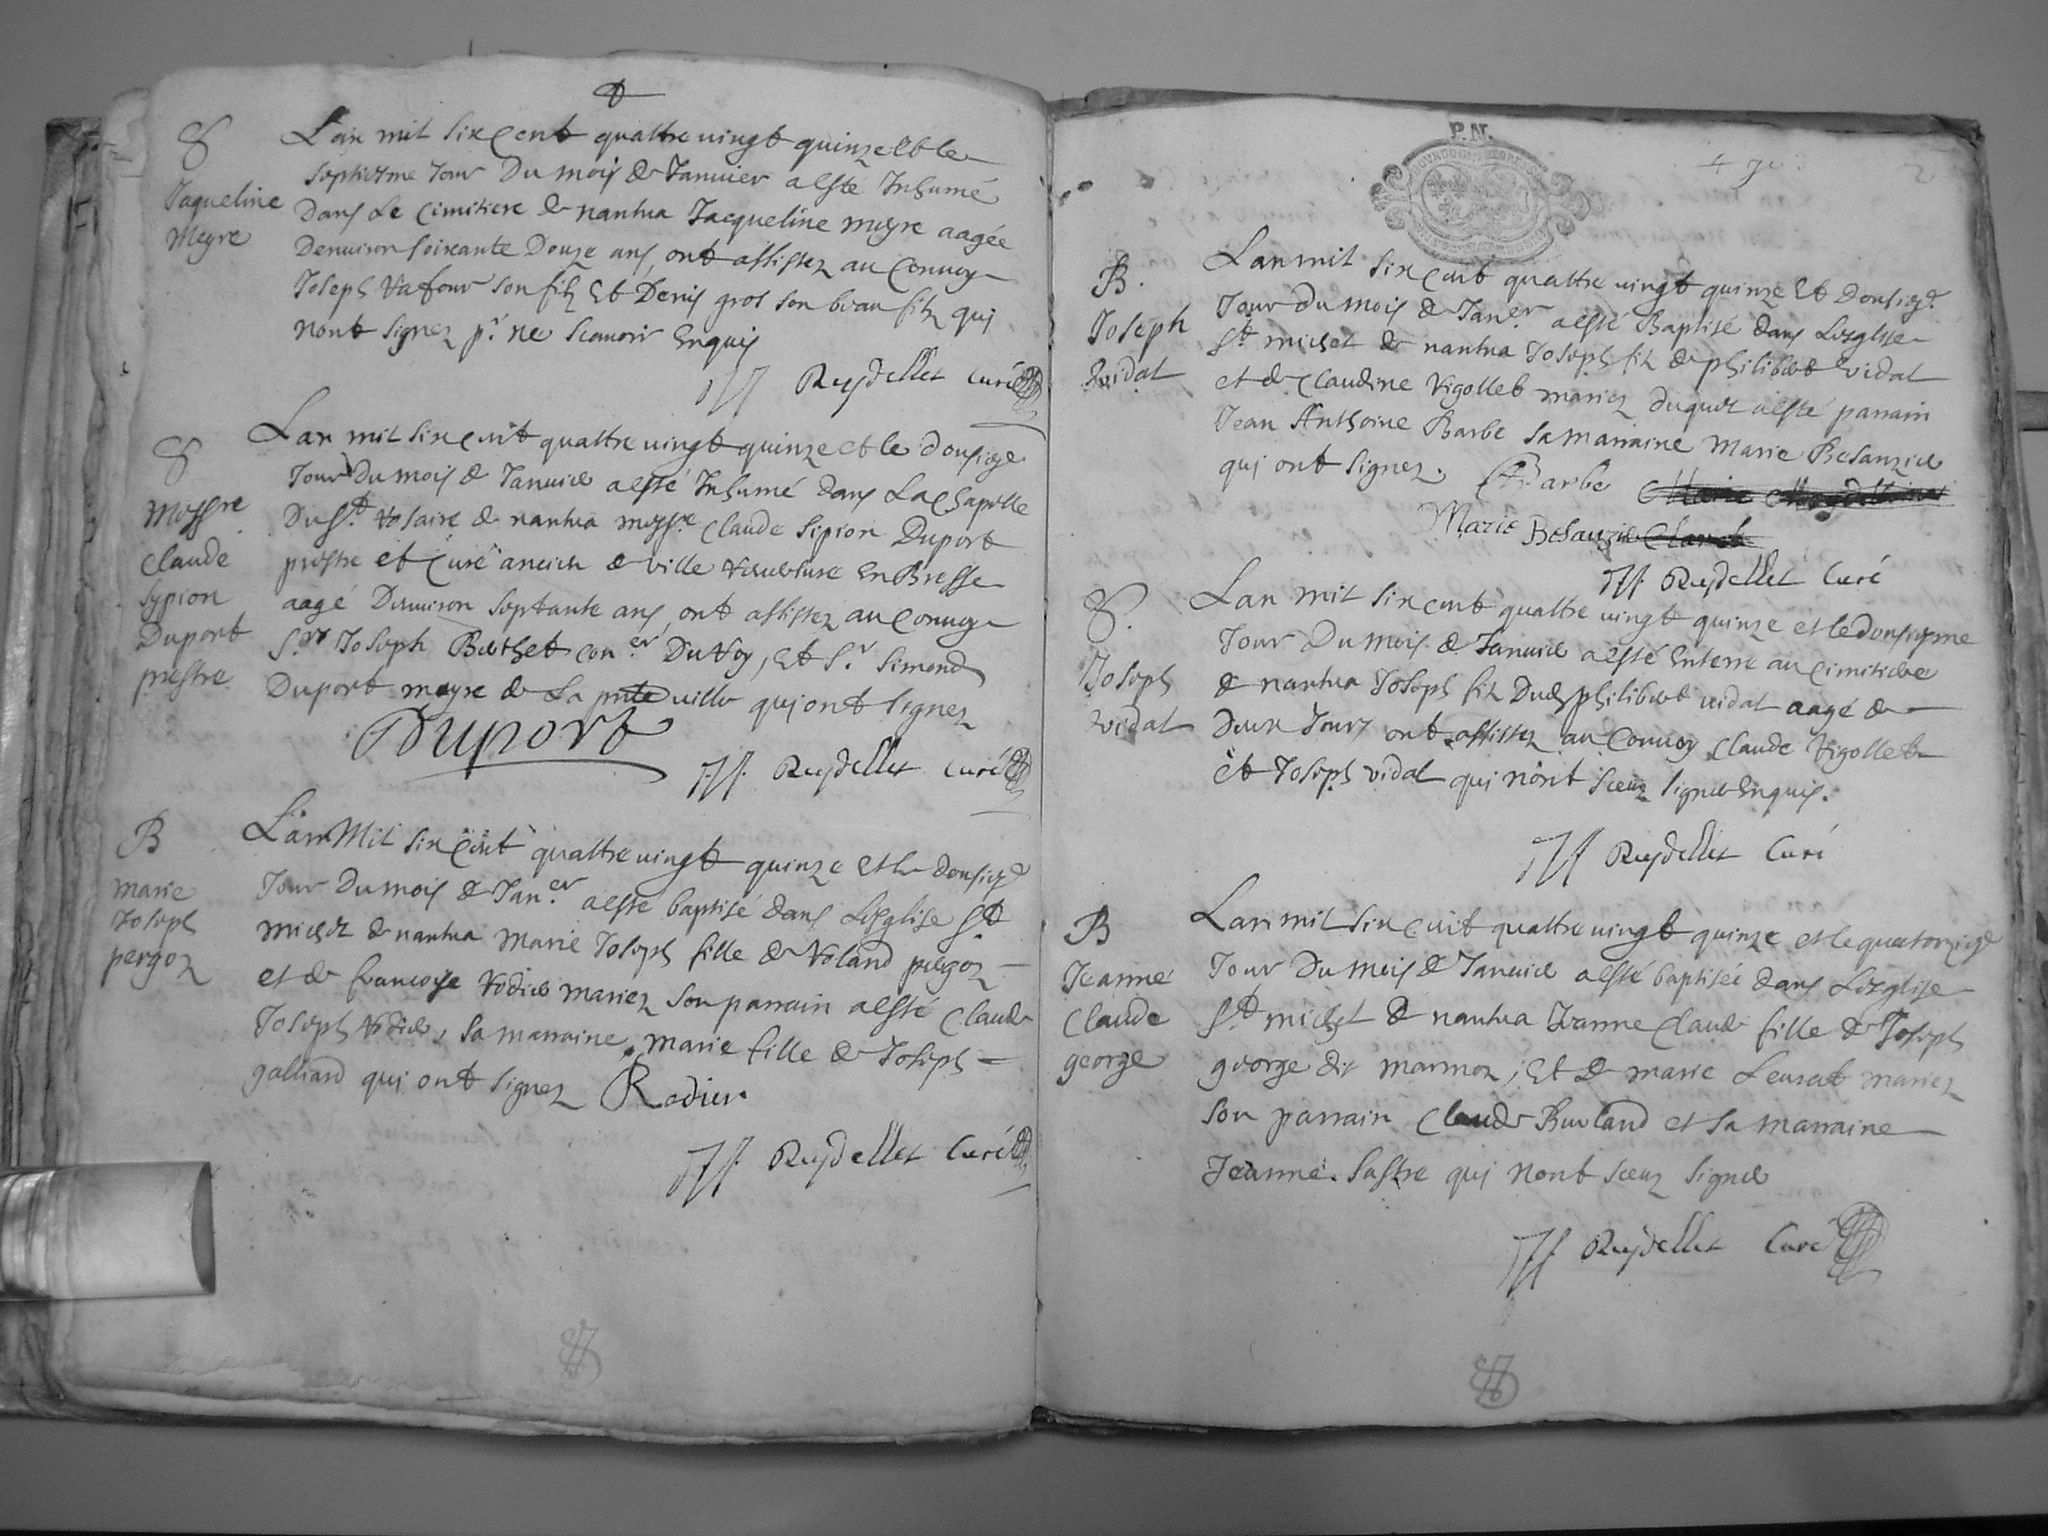 S
Jaqueline
Meyre
Lan mil six cent quattre vingt quinze et le
septiesme Jour Du mois de Januier a esté Inhumé
Dans Le cimitiere de nantua Jacqueline meyre aagée
Denuiron soixante Douze ans, ont assistez au Conuoy
Joseph Vafour son filz Et Denis gros son beau filz qui
nont signez pr. ne scauoir Enquis
Ruydellet Curé
S
Messre
Claude
Sypion
Duport
prestre
Lan mil six cent quattre vingt quinze et le donsiesme
Jour Du mois de Januier a esté Inhumé dans La Chapelle
Du St. Rosaire de nantua messre. Claude Sipion Duport
prestre et Curé ancien de ville reuersure En Bresse
aagé Denuiron septante ans, ont assistez au Conuoy
Sr. Joseph Berthet coner. Du Roy, Et Sr. Simond
Duport meyre de La pnte ville qui ont signez
Duport
Ruydellet Curé
B
marie
Joseph
pergoz
Lan Mil six Cent quattre vingt quinze et le donsiesme
Jour Du mois de Janer. a esté baptisé dans Lesglise St
michel de nantua Marie Joseph fille de Roland pergoz
et de francoise Rodier mariez son parrain a esté Claude
Joseph Rodier, sa marraine marie fille de Joseph
galliard qui ont signez Rodier.
Ruydellet Curé
P.N.
2
B.
Joseph
vidal
Lan mil six cent quattre vingt quinze Et donsiesme
Jour du mois de Janer. a esté Baptisé dans Lesglise
St. michel de nantua Joseph filz de philibert vidal
et de Claudine Vigollet mariez duquel a esté parrain
Jean Anthoine Barbe sa marraine Marie Besanzier
qui ont signez. Barbe
Marie Besanzier
Ruydellet Curé
S.
Joseph
vidal
Lan mil six cent quattre vingt quinze et le donsiesme
Jour Du mois de Januier a esté Enterré au cimitiere
de nantua Joseph filz Dudt philibert vidal aagé de
Deux Jours ont assistez au Conuoy Claude Vigollet
et Joseph vidal qui nont sceuz signer Enquis.
Ruydellet Curé
B
Jeanne
Claude
george
Lan mil six cent quattre vingt quinze et le quatorziesme
Jour Du mois de Januier a esté baptisée dans Lesglise
St. michel de nantua Jeanne Claude fille de Joseph
george dit marmoz, Et de marie Leurat mariez
son parrain Claude Burland et sa marraine
Jeanne. Sastre qui nont sceuz signer
Ruydellet Curé